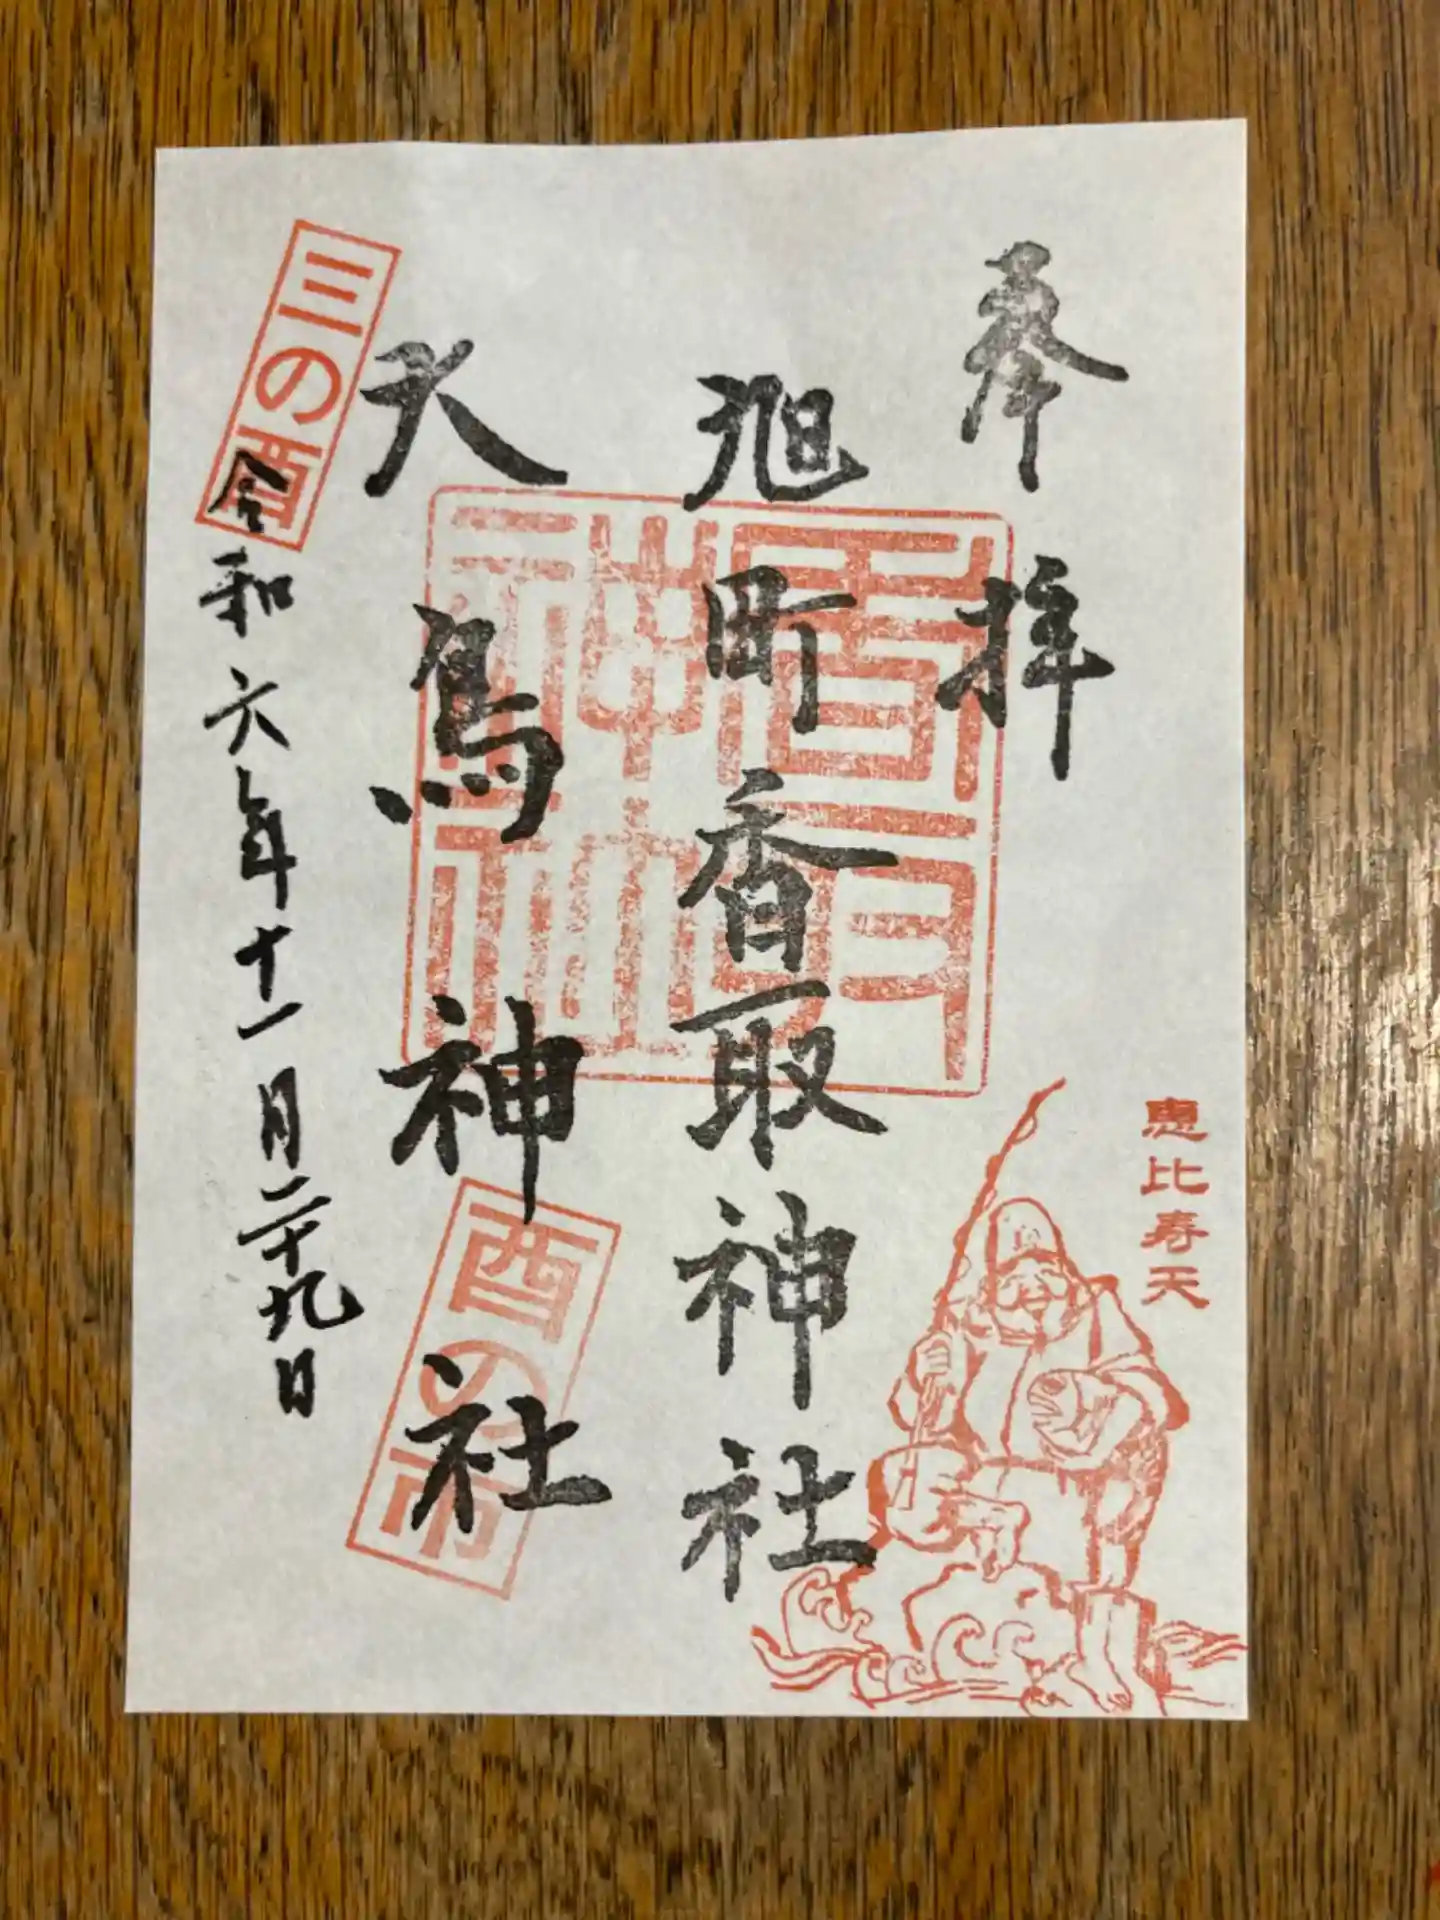 奉拝
旭町香取神社
大鳥神社
令和六年十一月二十九日
三の酉
酉の市
香取神社
恵比寿天